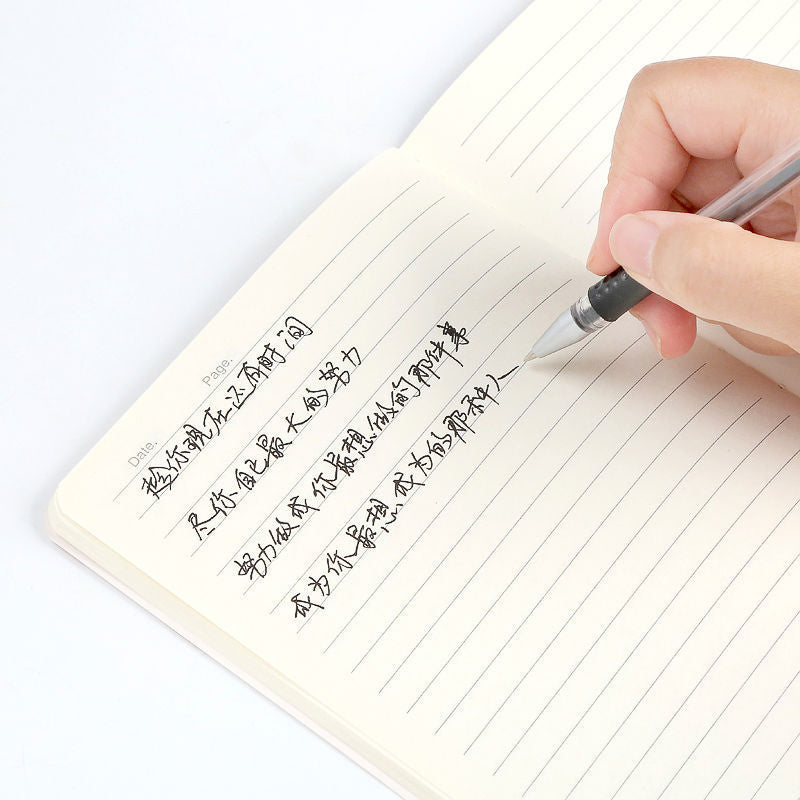 Date.
Page.
趁你现在还有时间
尽你自己最大的努力
努力做成你最想做的那件事
成为你最想成为的那种人